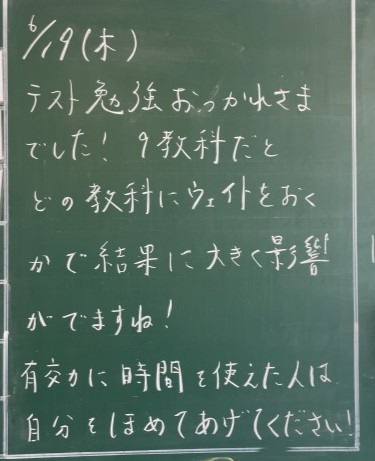 6/19(木)
テスト勉強おつかれさま
でした! 9教科だと
どの教科にウェイトをおく
かで結果に大きく影響
がでますね!
有効に時間を使えた人は
自分をほめてあげてください!